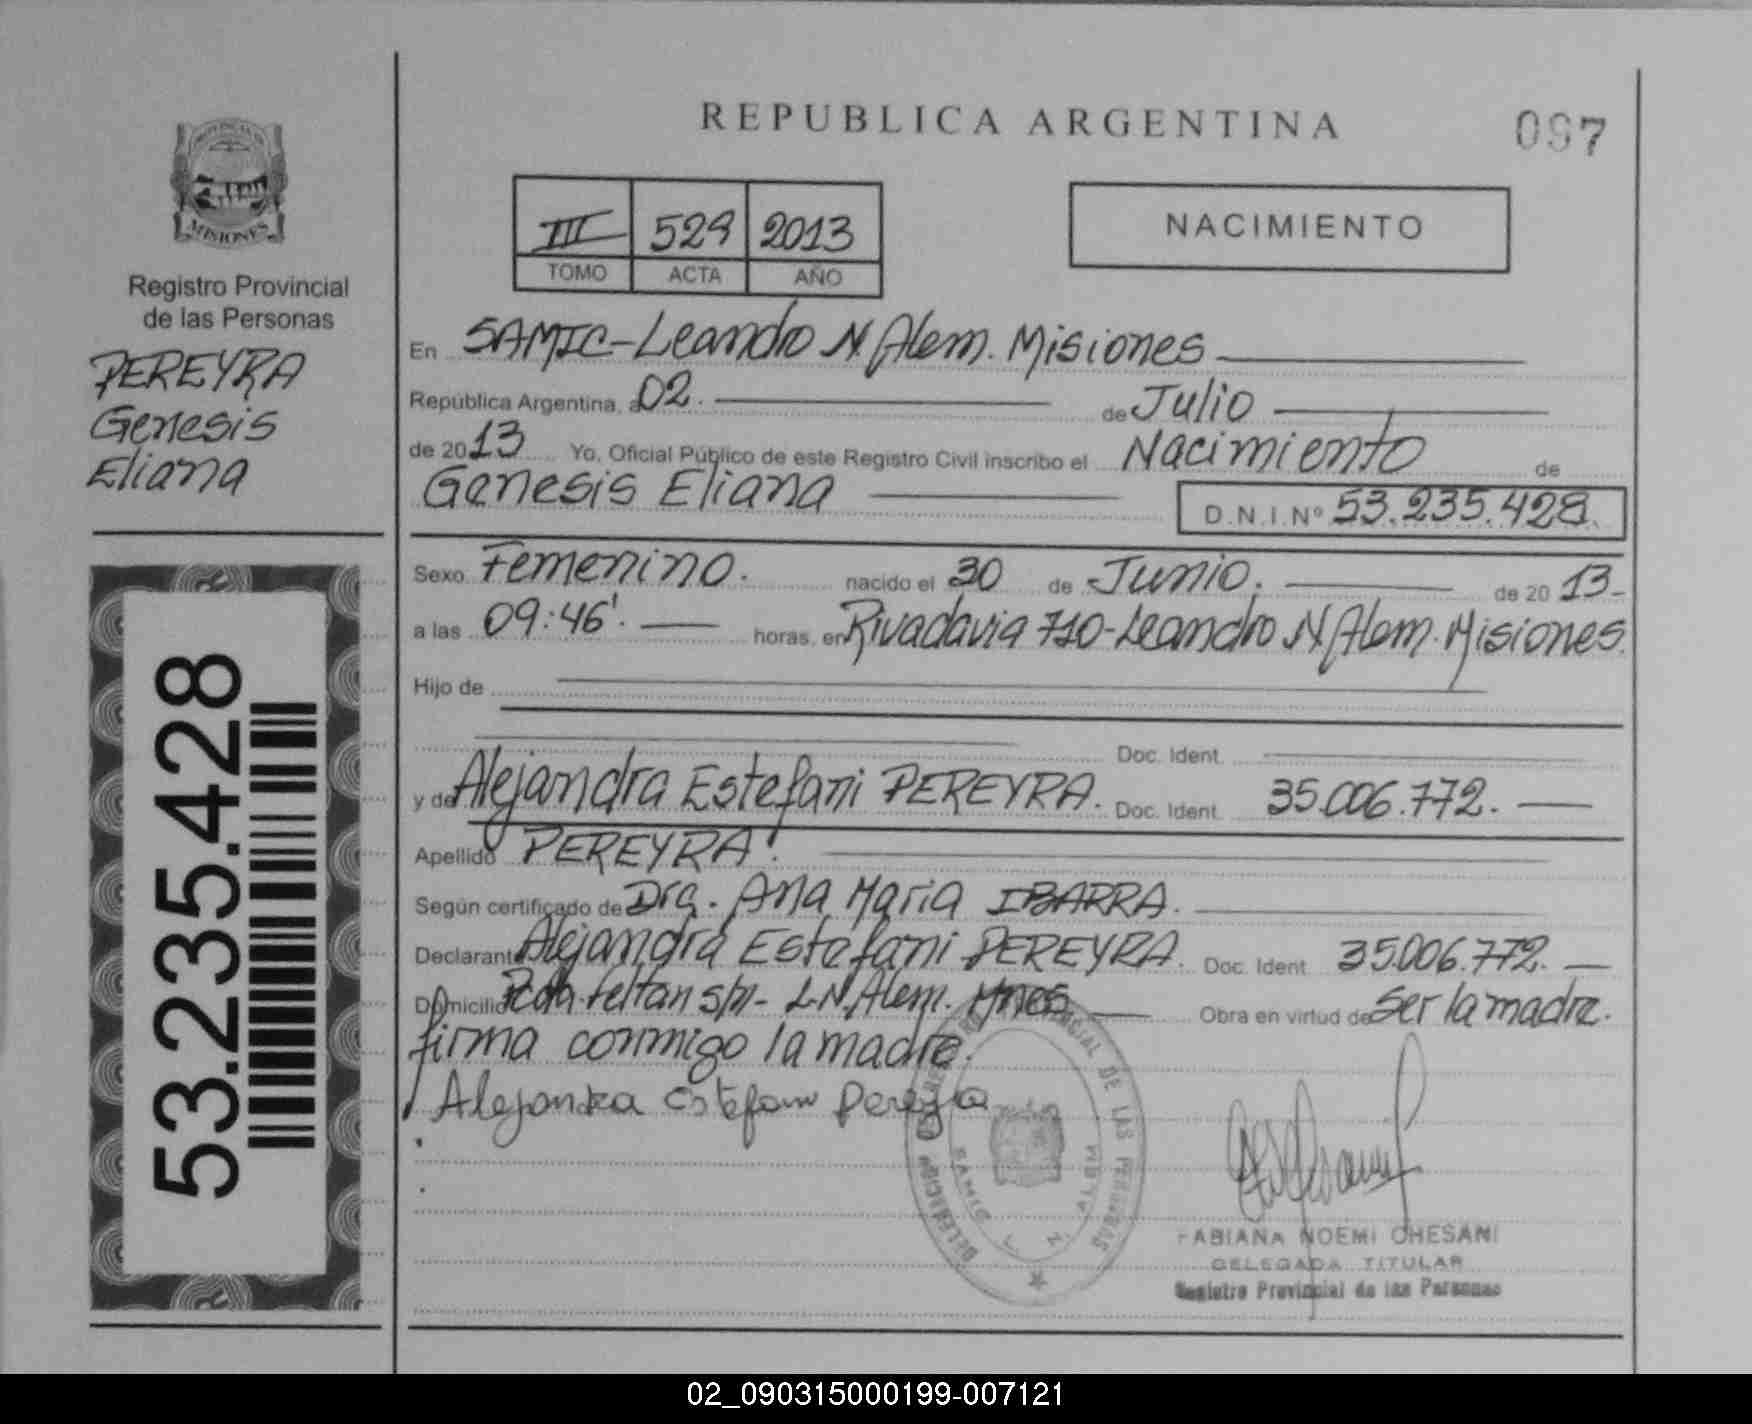 REPUBLICA ARGENTINA
097
PROVINCIA DE
MISIONES
Registro Provincial
de las Personas
PEREYRA
Genesis
Eliana
53.235.428
III 529 2013
TOMO ACTA AÑO
NACIMIENTO
En SAMIC-Leandro N. Alem. Misiones
República Argentina, a 02. de Julio
de 2013 Yo, Oficial Público de este Registro Civil inscribo el Nacimiento de
Genesis Eliana D.N.I.Nº 53.235.428.
Sexo Femenino. nacido el 30 de Junio. de 2013-
a las 09:46'. horas, en Rivadavia 710-Leandro N Alem. Misiones.
Hijo de
Doc. Ident.
y de Alejandra Estefani PEREYRA. Doc. Ident. 35.006.772.
Apellido PEREYRA.
Según certificado de Dra. Ana Maria IBARRA.
Declarante Alejandra Estefani PEREYRA. Doc. Ident 35.006.772.
Domicilio Pcia. s/n- L.N. Alem. Mnes Obra en virtud de Ser la madre.
firma conmigo la madre.
Alejandra Estefani Pereyra
DELEGACION REGISTRO PROVINCIAL DE LAS PERSONAS
SAMIC L. N. ALEM
FABIANA NOEMI CHESANI
DELEGADA TITULAR
Registro Provincial de las Personas
02_090315000199-007121